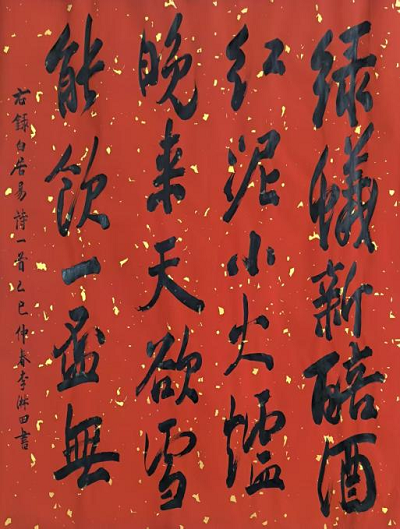 绿蟻新醅酒
红泥小火爐
晚来天欲雪
能飲一盃無
右録白居易詩一首乙巳仲春李淋田書